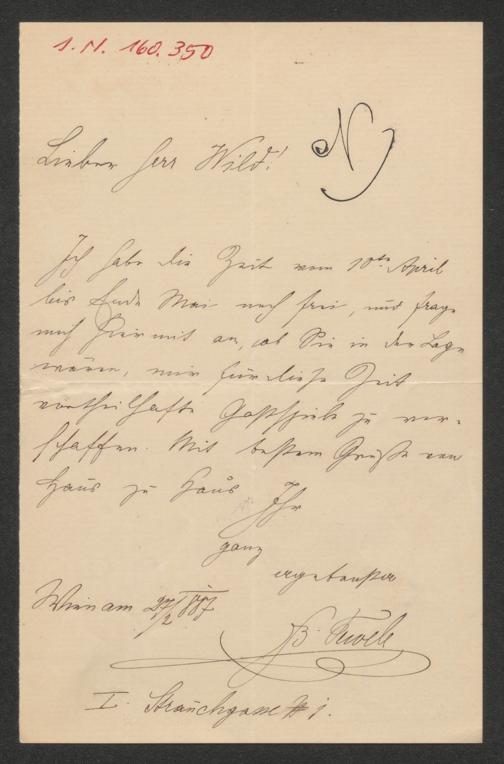 I. N. 160.350
N
Lieber Herr Wild!
Ich habe die Zeit vom 10ten April
bis Ende Mai noch frei, und frage
mich hiermit an, ob Sie in der Lage
wären, mir für diese Zeit
vortheilhafte Gastspiele zu ver-
schaffen. Mit bestem Gruße von
Haus zu Haus Ihr
ganz
ergebenster
Wien am 27/2 887
B.
I. Strauchgasse # 1.